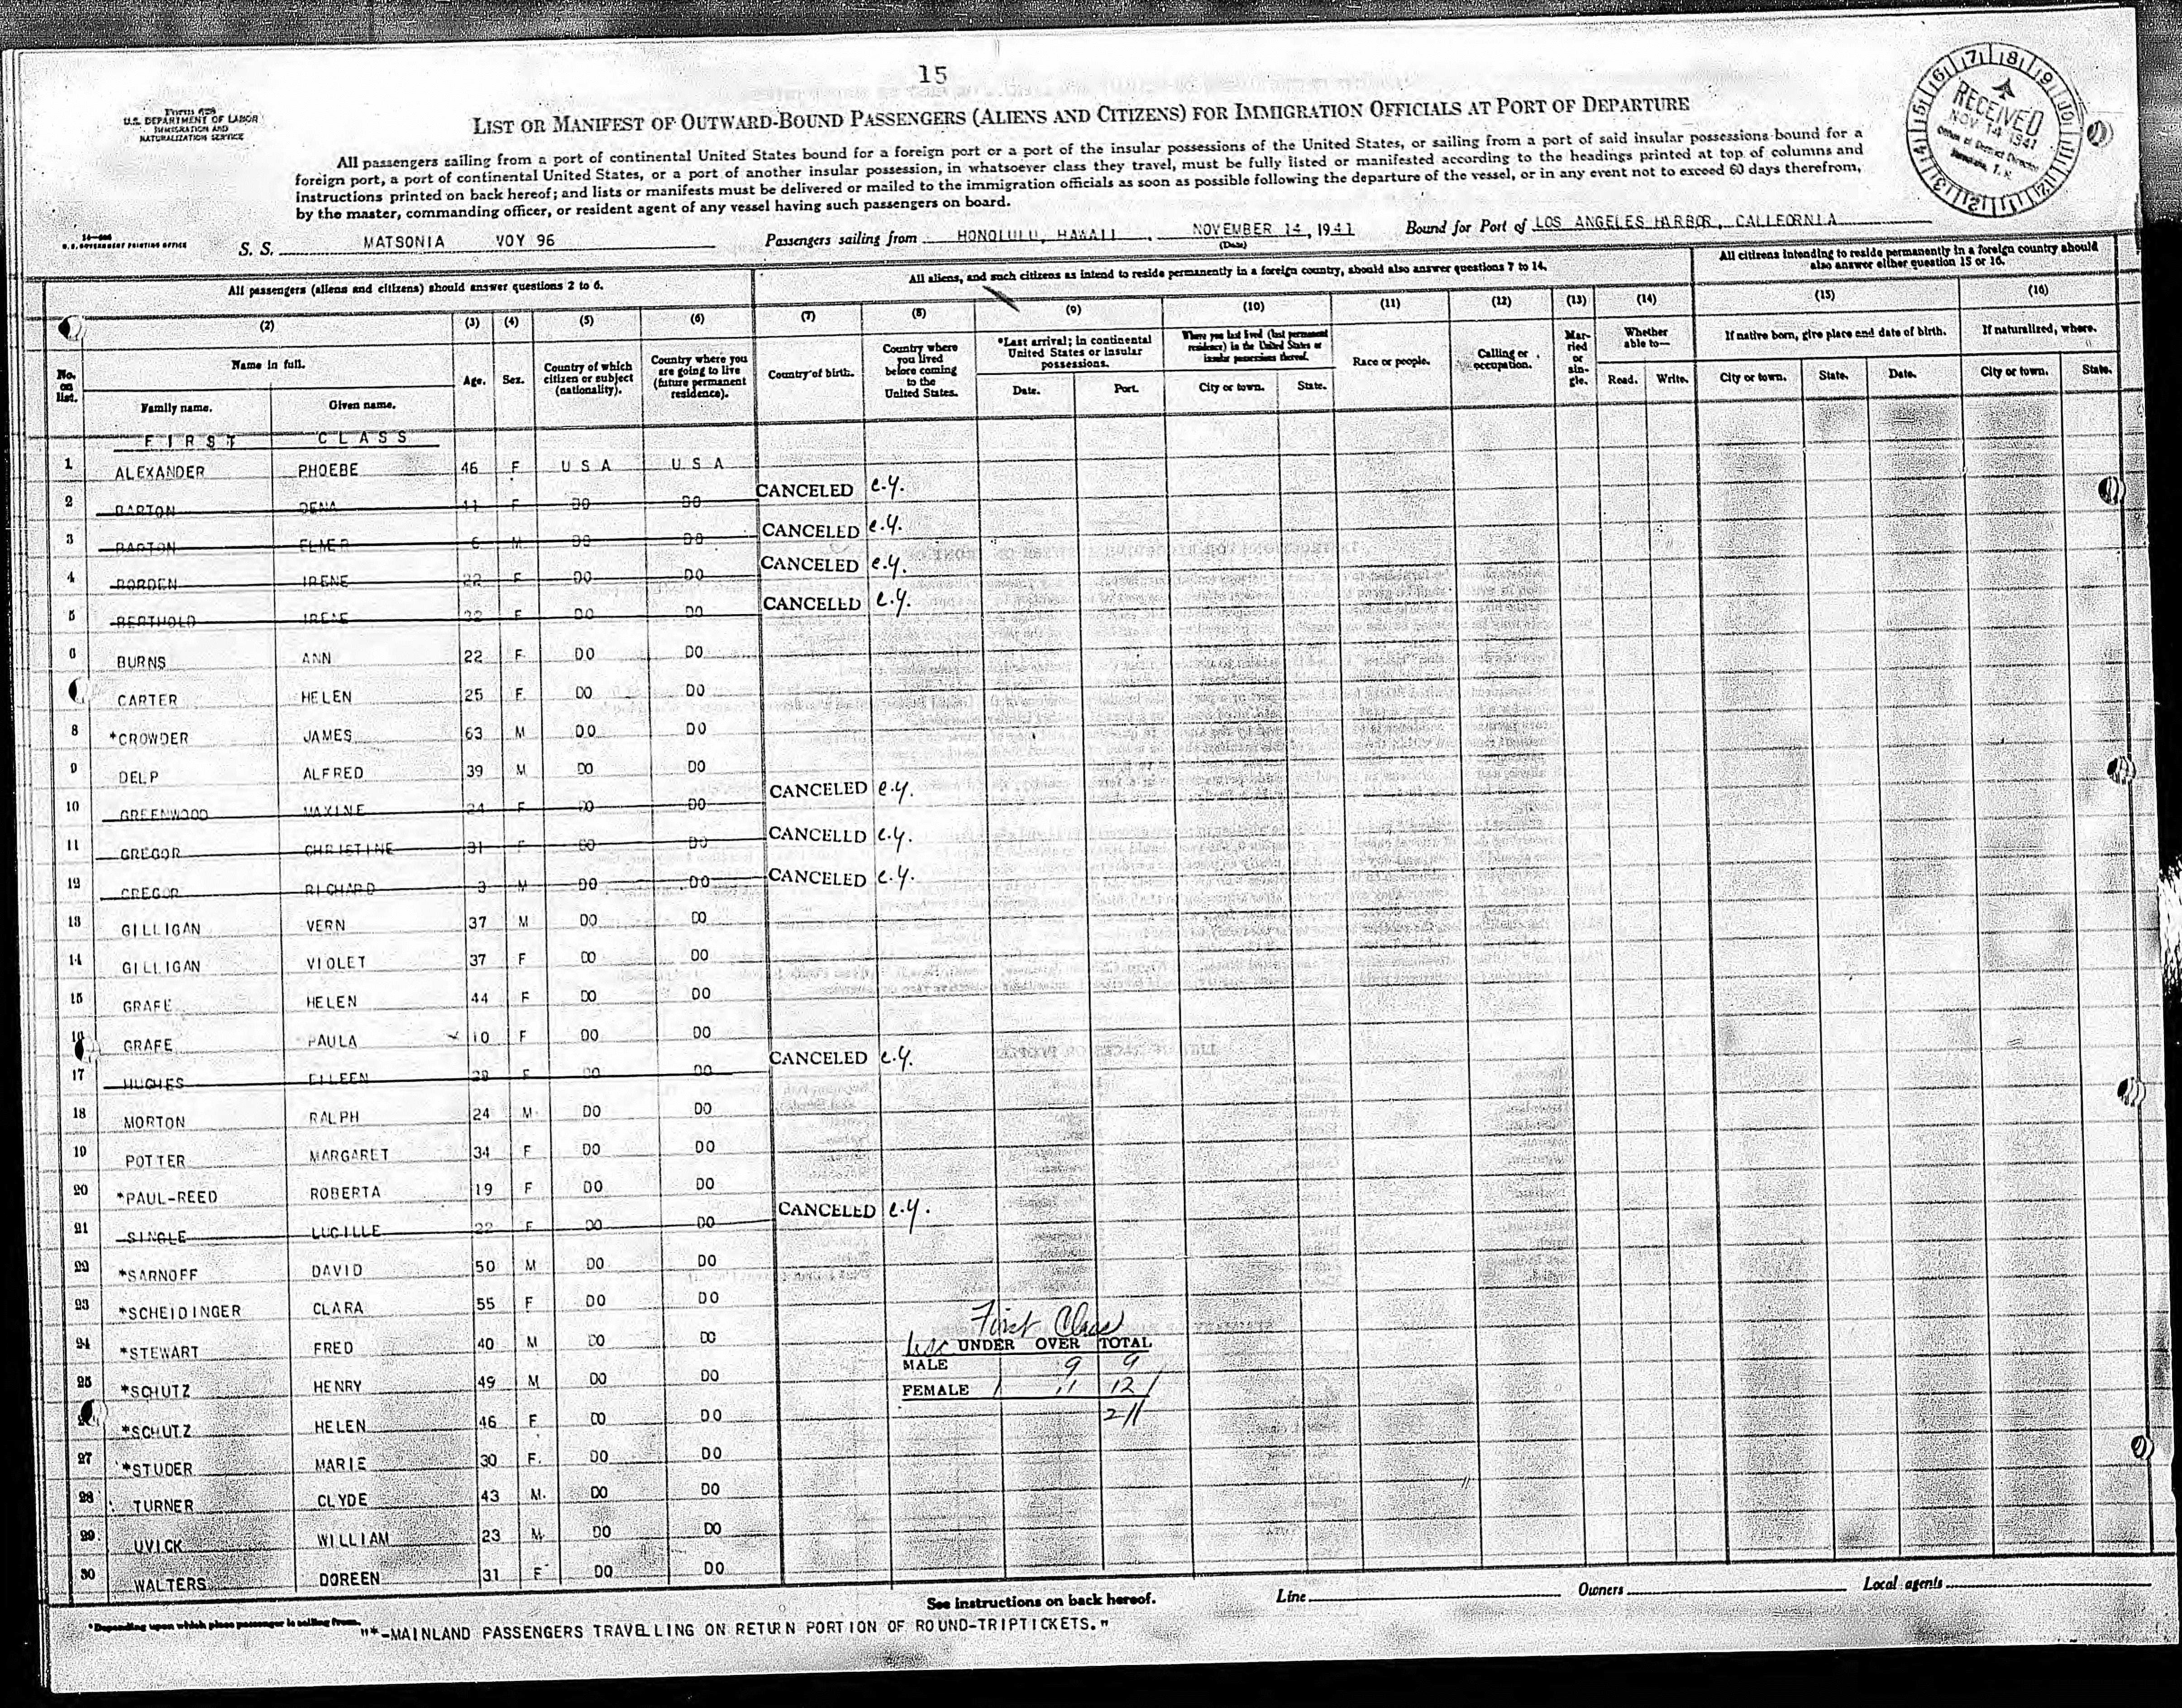 15
Form 628
U.S. DEPARTMENT OF LABOR
IMMIGRATION AND
NATURALIZATION SERVICE
LIST OR MANIFEST OF OUTWARD-BOUND PASSENGERS (ALIENS AND CITIZENS) FOR IMMIGRATION OFFICIALS AT PORT OF DEPARTURE
RECEIVED
NOV 14 1941
Office of District Director
Honolulu, T. H.
All passengers sailing from a port of continental United States bound for a foreign port or a port of the insular possessions of the United States, or sailing from a port of said insular possessions bound for a
foreign port, a port of continental United States, or a port of another insular possession, in whatsoever class they travel, must be fully listed or manifested according to the headings printed at top of columns and
instructions printed on back hereof; and lists or manifests must be delivered or mailed to the immigration officials as soon as possible following the departure of the vessel, or in any event not to exceed 60 days therefrom,
by the master, commanding officer, or resident agent of any vessel having such passengers on board.
U.S. GOVERNMENT PRINTING OFFICE
S. S. MATSONIA VOY 96 Passengers sailing from HONOLULU, HAWAII, NOVEMBER 14, 1941 Bound for Port of LOS ANGELES HARBOR, CALIFORNIA
(Date)
All passengers (aliens and citizens) should answer questions 2 to 6.
All aliens, and such citizens as intend to reside permanently in a foreign country, should also answer questions 7 to 14.
All citizens intending to reside permanently in a foreign country should also answer either question 15 or 16.
(2) (3) (4) (5) (6) (7) (8) (9) (10) (11) (12) (13) (14) (15) (16)
No. on list.
Name in full.
Family name. Given name.
Age.
Sex.
Country of which citizen or subject (nationality).
Country where you are going to live (future permanent residence).
Country of birth.
Country where you lived before coming to the United States.
*Last arrival; in continental United States or insular possessions.
Date. Port.
Where you last lived (last permanent residence) in the United States or insular possessions thereof.
City or town. State.
Race or people.
Calling or occupation.
Married or single.
Whether able to—
Read. Write.
If native born, give place and date of birth.
City or town. State. Date.
If naturalized, where.
City or town. State.
FIRST CLASS
1 ALEXANDER PHOEBE 46 F U S A U S A
2 BARTON DENA 11 F DO DO CANCELED e.y.
3 BARTON ELMER 6 M DO DO CANCELED e.y.
4 BORDEN IRENE 22 F DO DO CANCELED e.y.
5 BERTHOLD IRENE 22 F DO DO CANCELED e.y.
6 BURNS ANN 22 F DO DO
CARTER HELEN 25 F DO DO
8 *CROWDER JAMES 63 M DO DO
9 DELP ALFRED 39 M DO DO
10 GREENWOOD MAXINE 24 F DO DO CANCELED e.y.
11 GREGOR CHRISTINE 31 F DO DO CANCELLD e.y.
12 GREGOR RICHARD 3 M DO DO CANCELED e.y.
13 GILLIGAN VERN 37 M DO DO
14 GILLIGAN VIOLET 37 F DO DO
15 GRAFE HELEN 44 F DO DO
16 GRAFE PAULA 10 F DO DO
17 HUGHES EILEEN 28 F DO DO CANCELED e.y.
18 MORTON RALPH 24 M DO DO
19 POTTER MARGARET 34 F DO DO
20 *PAUL-REED ROBERTA 19 F DO DO
21 SINGLE LUCILLE 22 F DO DO CANCELED e.y.
22 *SARNOFF DAVID 50 M DO DO
23 *SCHEIDINGER CLARA 55 F DO DO
24 *STEWART FRED 40 M DO DO
25 *SCHUTZ HENRY 49 M DO DO
*SCHUTZ HELEN 46 F DO DO
27 *STUDER MARIE 30 F. DO DO
28 TURNER CLYDE 43 M. DO DO
29 UVICK WILLIAM 23 M. DO DO
30 WALTERS DOREEN 31 F DO DO
First Class
USC UNDER OVER TOTAL
MALE 9 9
FEMALE 1 11 12
21
See instructions on back hereof. Line Owners Local agents
*Depending upon which place passenger is sailing from.
"*-MAINLAND PASSENGERS TRAVELLING ON RETURN PORTION OF ROUND-TRIPTICKETS."